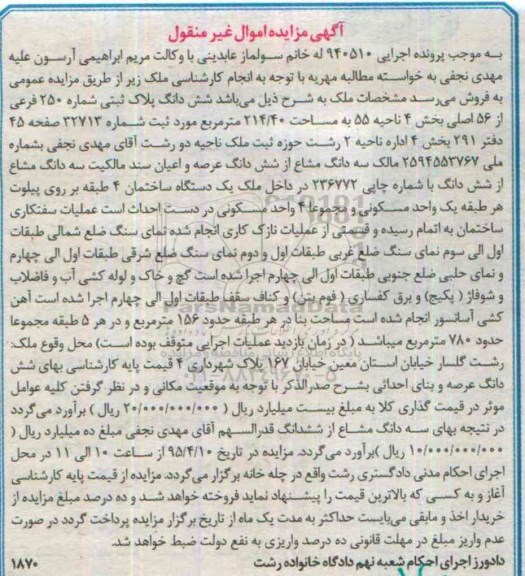 آگهی مزایده اموال غیر منقول
به موجب پرونده اجرایی ۹۴۰۵۱۰ له خانم سولماز عابدینی با وکالت مریم ابراهیمی آرسون علیه
مهدی نجفی به خواسته مطالبه مهریه با توجه به انجام کارشناسی ملک زیر از طریق مزایده عمومی
به فروش می‌رسد مشخصات ملک به شرح ذیل می‌باشد شش دانگ پلاک ثبتی شماره ۲۵۰ فرعی
از ۵۶ اصلی بخش ۴ ناحیه ۵۵ به مساحت ۲۱۴/۴۰ مترمربع مورد ثبت شماره ۳۲۷۱۳ صفحه ۴۵
دفتر ۲۹۱ بخش ۴ اداره ناحیه ۲ رشت حوزه ثبت ملک ناحیه دو رشت آقای مهدی نجفی بشماره
ملی ۲۵۹۴۵۵۳۷۶۷ مالک سه دانگ مشاع از شش دانگ عرصه و اعیان سند مالکیت سه دانگ مشاع
از شش دانگ با شماره چاپی ۲۳۶۷۷۲ در داخل ملک یک دستگاه ساختمان ۴ طبقه بر روی پیلوت
هر طبقه یک واحد مسکونی و مجموعا ۴ واحد مسکونی در دست احداث است عملیات سفتکاری
ساختمان به اتمام رسیده و قسمتی از عملیات نازک کاری انجام شده نمای سنگ ضلع شمالی طبقات
اول الی سوم نمای سنگ ضلع غربی طبقات اول و دوم نمای سنگ ضلع شرقی طبقات اول الی چهارم
و نمای حلبی ضلع جنوبی طبقات اول الی چهارم اجرا شده است گچ و خاک و لوله کشی آب و فاضلاب
و شوفاژ ( پکیج) و برق کفسازی ( فوم بتن) و کناف سقف طبقات اول الی چهارم اجرا شده است آهن
کشی آسانسور انجام شده است مساحت بنا در هر طبقه حدود ۱۵۶ مترمربع و در هر ۵ طبقه مجموعا
حدود ۷۸۰ مترمربع میباشد ( در زمان بازدید عملیات اجرایی متوقف بوده است) محل وقوع ملک:
رشت گلسار خیابان استان معین خیابان ۱۷۶ پلاک شهرداری ۴ قیمت پایه کارشناسی بهای شش
دانگ عرصه و بنای احداثی بشرح صدرالذکر با توجه به موقعیت مکانی و در نظر گرفتن کلیه عوامل
موثر در قیمت گذاری کلا به مبلغ بیست میلیارد ریال ( ۲۰/۰۰۰/۰۰۰/۰۰۰ ریال ) برآورد می‌گردد
در نتیجه بهای سه دانگ مشاع از ششدانگ قدرالسهم آقای مهدی نجفی مبلغ ده میلیارد ریال (
۱۰/۰۰۰/۰۰۰/۰۰۰ ریال )برآورد می‌گردد. مزایده در تاریخ ۹۵/۴/۱۰ از ساعت ۱۰ الی ۱۱ در محل
اجرای احکام مدنی دادگستری رشت واقع در چله خانه برگزار می‌گردد. مزایده از قیمت پایه کارشناسی
آغاز و به کسی که بالاترین قیمت را پیشنهاد نماید فروخته خواهد شد و ده درصد مبلغ مزایده از
خریدار اخذ و مابقی می‌بایست حداکثر به مدت یک ماه از تاریخ برگزار مزایده پرداخت گردد در صورت
عدم واریز مبلغ در مهلت قانونی ده درصد واریزی به نفع دولت ضبط خواهد شد.
دادورز اجرای احکام شعبه نهم دادگاه خانواده رشت ۱۸۷۰